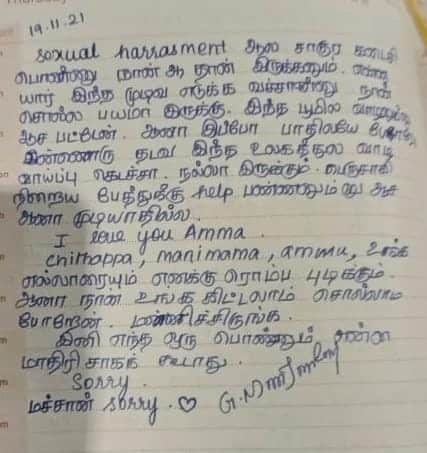 19.11.21
sexual harrasment ஆல சாகுர கடைசி
பொண்ணு நான் ஆ தான் இருக்கணும். என்ன
யார் இந்த முடிவ எடுக்க வச்சாங்கனு நான்
சொல்ல பயமா இருக்கு. இந்த பூமில வாழணும்னு
ஆச பட்டேன். ஆனா இப்போ பாதிலயே போறேன்
இன்னொரு தடவ இந்த உலகத்துல வாழ
வாய்ப்பு கெடச்சா நல்லா இருக்கும். பெருசாகி
நிறைய பேத்துக்கு help பண்ணனும்னு ஆச
ஆனா முடியாதில்ல.
I love you Amma.
chithappa, manimama, ammu, உங்க
எல்லாரையும் எனக்கு ரொம்ப புடிக்கும்.
ஆனா நான் உங்க கிட்டலாம் சொல்லாம
போறேன். மன்னிச்சிருங்க.
இனி எந்த ஒரு பொண்ணும் என்ன
மாதிரி சாகக் கூடாது.
Sorry.
மச்சான் sorry. ♡